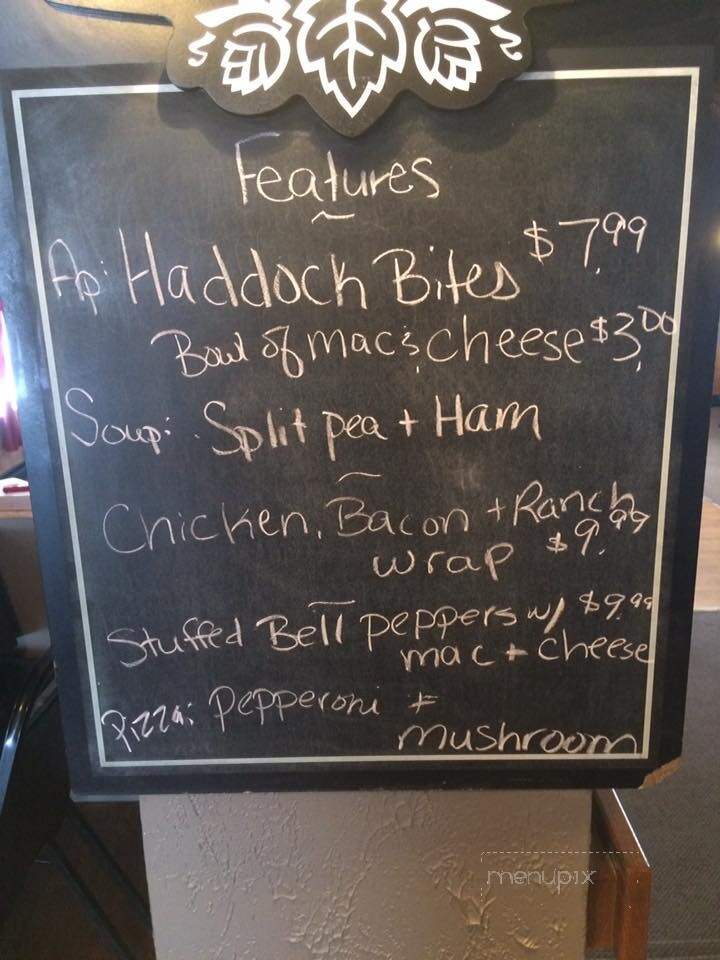 Features
~
Ap: Haddock Bites $7.99
Bowl of mac & cheese $3.00
Soup: Split pea + Ham
~
Chicken, Bacon + Ranch
wrap $9.99
Stuffed Bell peppers w/ $9.99
mac + cheese
Pizza: Pepperoni +
mushroom
menupix